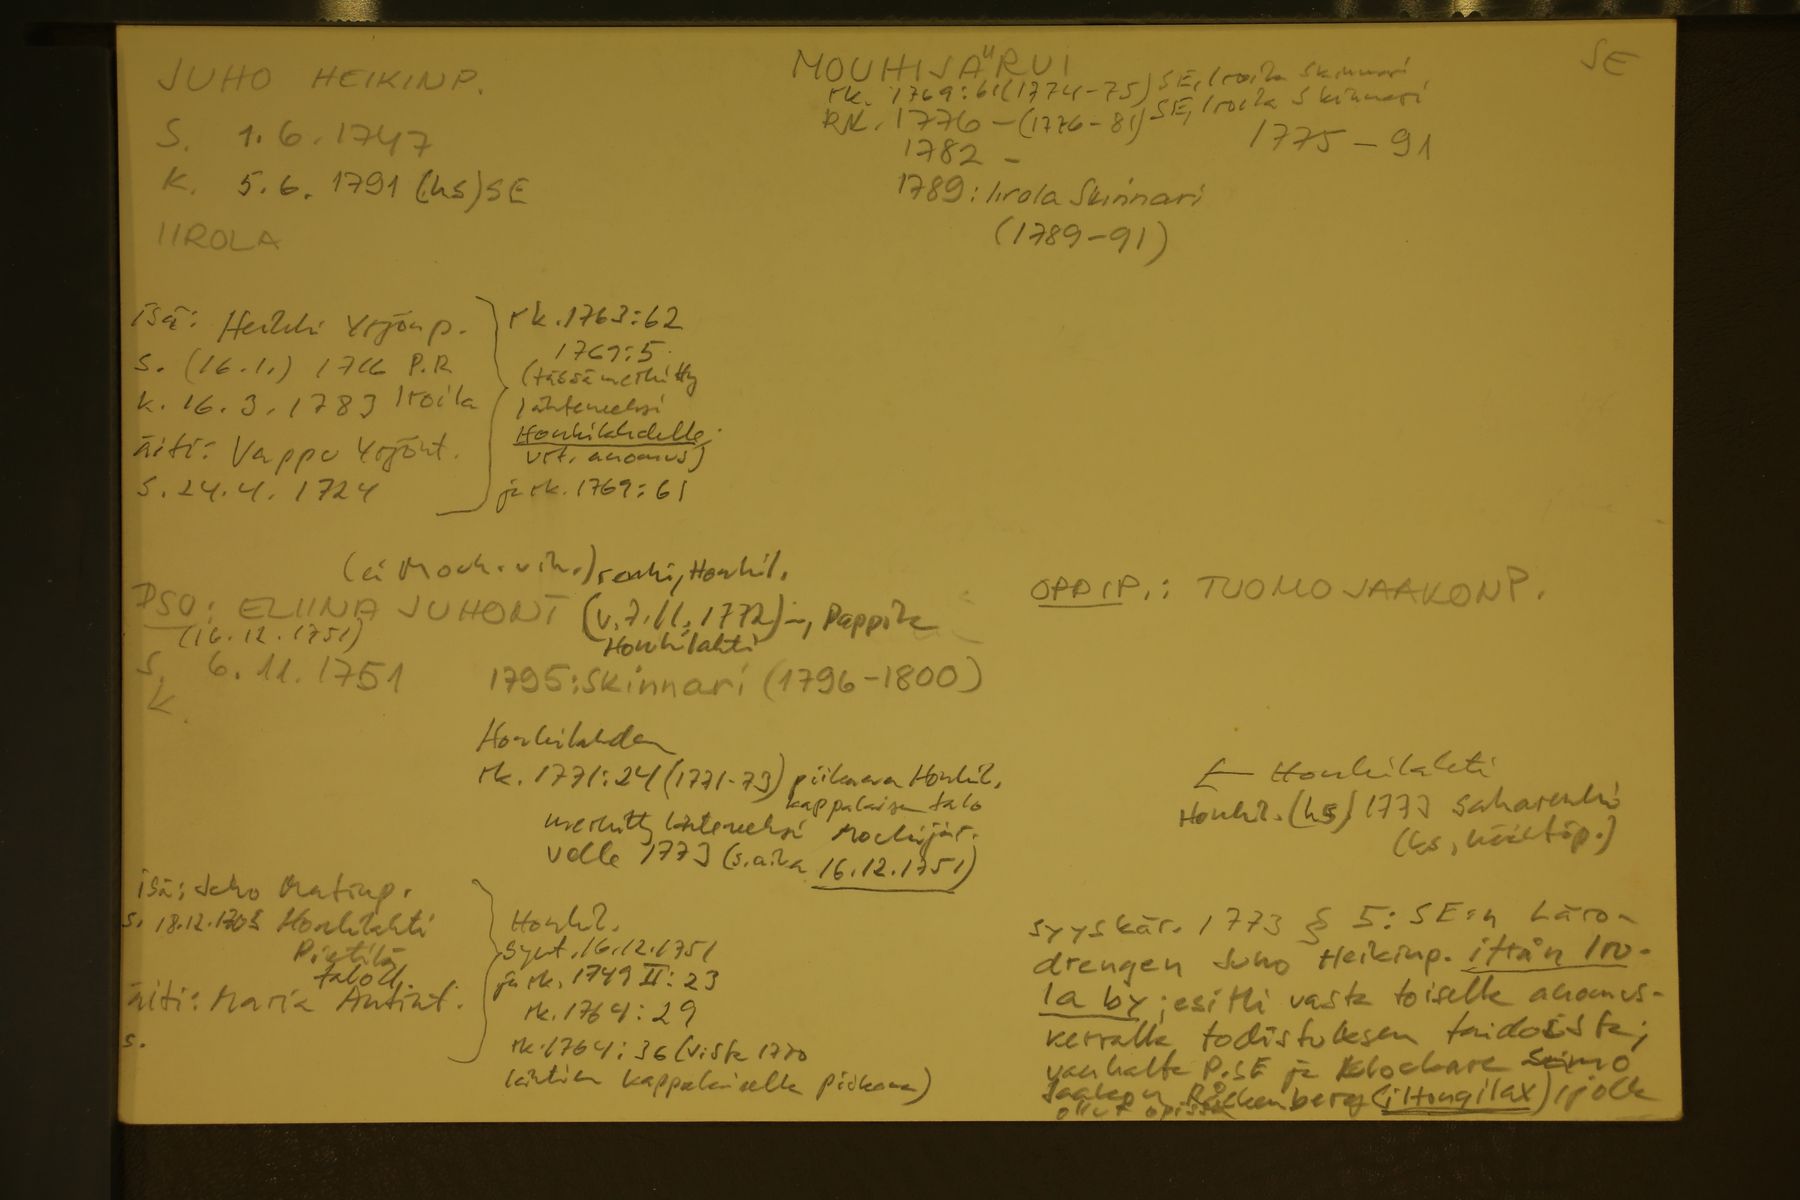 JUHO HEIKINP.
S. 1.6.1747
K. 5.6.1791 (hs) SE
IIROLA
MOUHIJÄRVI
rk. 1769:61 (1774-75) SE, Iroila Skinnari
RK. 1776 - (1776-81) SE, Iroila Skinnari
1782 -
1775-91
1789: Iirola Skinnari
(1789-91)
SE
isä: Heikki Yrjönp.
s. (16.1.) 1716 P.R
k. 16.3.1783 Iroila
äiti: Vappu Yrjönt.
s. 24.4.1724
rk. 1763:62
1769:5
(tässä merkitty
lähteneeksi
Honkilahdelle;
vrt. anomus)
ja rk. 1769:61
(ei Mouh. vih.) renki, Honkil.
PSO: ELIINA JUHONT (v. 7.11.1772) -, Pappila
(16.12.1751) Honkilahti
S. 6.11.1751 1795: Skinnari (1796-1800)
K.
Honkilahden
rk. 1771:24 (1771-73) piikana Honkil.
kappalaisen talo
merkitty lähteneeksi Mouhijär-
velle 1773 (s.aika 16.12.1751)
isä: Juho Matinp.
s. 18.12.1703 Honkilahti
Pietilä
taloll.
äiti: Maria Antint.
s.
Honkil.
synt. 16.12.1751
ja rk. 1749 II: 23
rk. 1764: 29
rk. 1764: 36 (vista 1770
lähtien kappalaiselle piikana)
OPPIP.: TUOMO JAAKONP.
← Honkilahti
Honkil. (hs) 1773
syyskär. 1773 § 5: SE:n Läro-
drengen Juho Heikinp. ifrån Iro-
la by; esitti vasta toisella anomus-
kerralla todistuksen taidoista;
vanhalta P.SE ja Klockare Simo
Jaakonp. (i Hongilax), jolla
ollut opissa